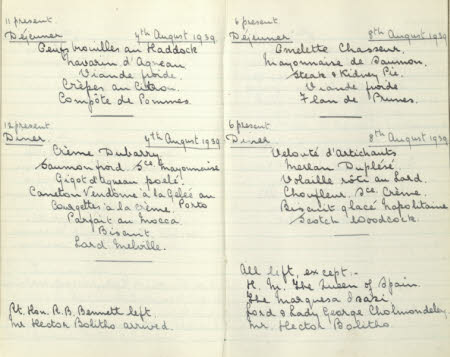 11 present
Déjeuner 7th August 1939
Oeufs brouillés au Haddock
Navarin d'Agneau
Viande froide.
Crêpes au Citron.
Compôte de Pommes.
12 present
Diner 7th August 1939
Crème Dubarry
Saumon froid Sce Mayonnaise
Gigot d'Agneau poelé.
Caneton Vendôme à la Gelée au Porto
Courgettes à la crème.
Parfait au Mocca
Biscuit
Lard Melville.
Rt. Hon. R.B. Bennett left.
Mr Hector Bolitho arrived.
6 present
Déjeuner 8th August 1939
Omelette Chasseur.
Mayonnaise de Saumon.
Steak & Kidney Pie.
Viande froide
Flan de Prunes.
6 present
Diner 8th August 1939
Velouté d'Artichauts
Merlan Dupléré.
Volaille rôti au Lard
Chouxfleur Sce. Crème.
Biscuit glacé Napolitaine
Scotch Woodcock.
All left, except :-
H. M. The Queen of Spain.
The Marquesa
Lord & Lady George Cholmondeley.
Mr. Hector Bolitho.